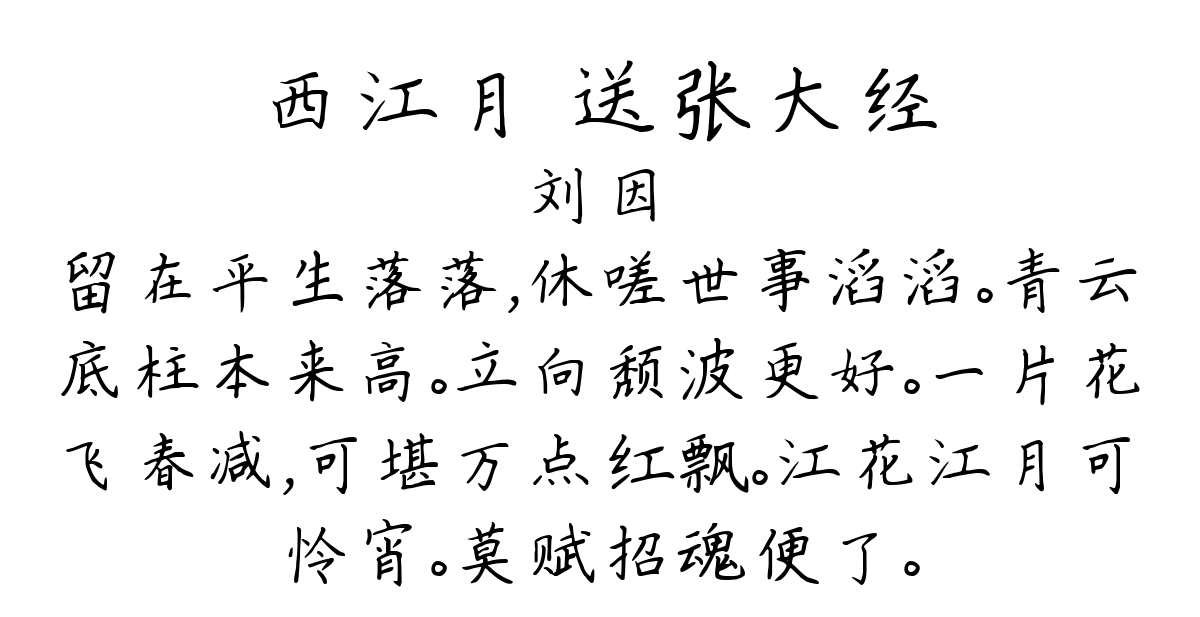 西江月 送张大经
刘因
留在平生落落,休嗟世事滔滔。青云
底柱本来高。立向颓波更好。一片花
飞春减,可堪万点红飘。江花江月可
怜宵。莫赋招魂便了。